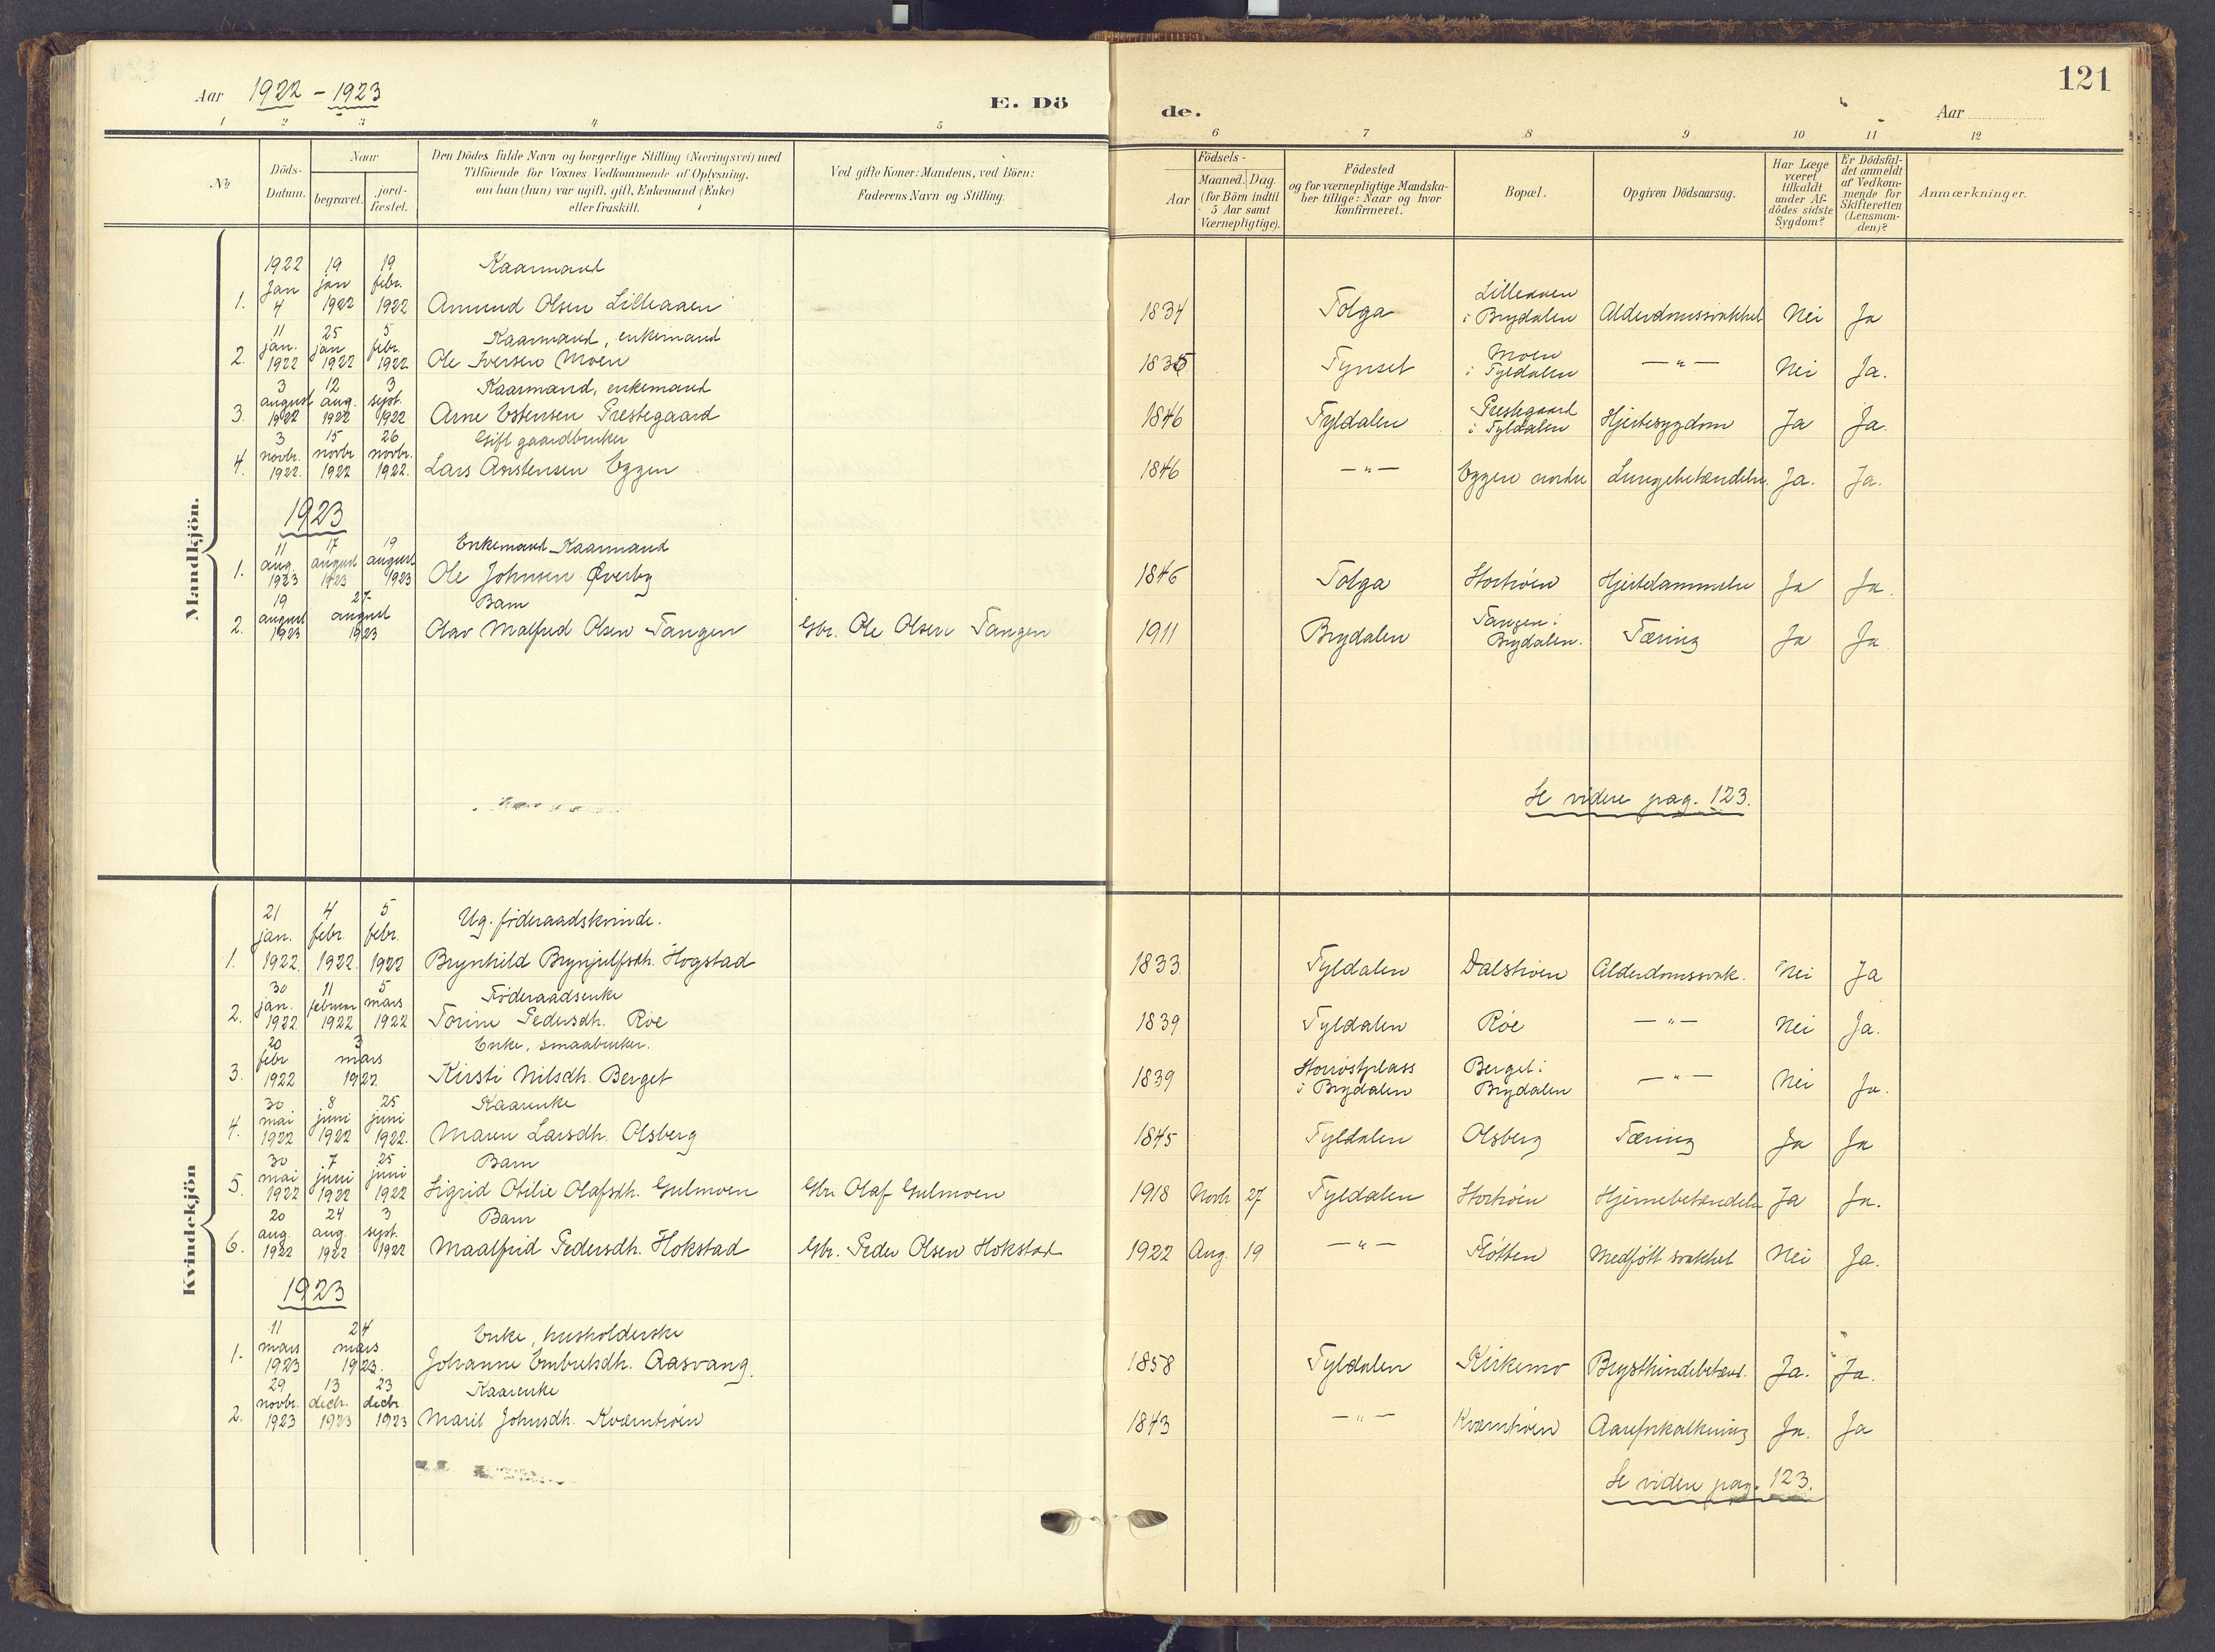 Aar 1922 - 1923
E. Döde.
121
Aar
1 2 3 4 5 6 7 8 9 10 11 12
No
Döds-Datum.
Naar
begravet.
jord-fæstet.
Den Dödes fulde Navn og borgerlige Stilling (Næringsvei) med
Tilföiende for Voxnes Vedkommende af Oplysning,
om han (hun) var ugift, gift, Enkemand (Enke)
eller fraskilt.
Ved gifte Koner: Mandens, ved Börn:
Faderens Navn og Stilling.
Födsels-
Aar
Maaned. Dag.
(for Börn indtil
5 Aar samt
Værnepligtige).
Födested
og for værnepligtige Mandska-
ber tillige: Naar og hvor
konfirmeret.
Bopæl.
Opgiven Dödsaarsag.
Har Læge
været
tilkaldt
under Af-
dödes sidste
Sygdom?
Er Dödsfal-
det anmeldt
af Vedkom-
mende for
Skifteretten
(Lensman-
den)?
Anmærkninger.
Mandkjön.
1922 Jan 4 19 jan 1922 19 febr. 1922 Kaarmand
1. Amund Olsen Lilleaaen 1834 Tolga Lilleaaen i Brydalen Alderdomssvakhet Nei Ja
11 jan. 1922 25 jan 1922 5 febr. 1922 Kaarmand, enkemand
2. Ole Iversen Moen 1835 Tynset Moen i Tyldalen —"— Nei Ja.
3 august 1922 12 aug. 1922 3 sept. 1922 Kaarmand, enkemand
3. Arne Estensen Prestegaard 1846 Tyldalen Prestegaard i Tyldalen Hjertesygdom Ja Ja.
3 novbr. 1922. 15 novbr 1922 26 novbr. 1922. Gift gaardbruker
4. Lars Arnstensen Eggen 1846 —"— Eggen nordre Lungebetændelse. Ja. Ja.
1923
11 aug. 1923 17 august 1923 19 august 1923 Enkemand Kaarmand
1. Ole Johnsen Øverby 1846 Tolga Stortrøen Hjertelammelse Ja Ja.
19 august 1923 27 august 1923 Barn
2. Olav Malfred Olsen Tangen Gbr. Ole Olsen Tangen 1911 Brydalen Tangen i Brydalen. Tæring Ja Ja
Indflyttede.
Se videre pag. 123.
Kvindekjön
21 jan. 1922. 4 febr. 1922. 5 febr. 1922 Ug. føderaadskvinde.
1. Brynhild Brynjulfsdh. Hogstad 1833 Tyldalen Dalstrøen Alderdomssvak. Nei Ja
30 jan. 1922 11 februar 1922 5 mars 1922 Føderaadsenke
2. Torine Pedersdh. Røe 1839 Tyldalen Røe —"— Nei Ja.
20 febr 1922 3 mars 1922 Enke, smaabruker.
3. Kirsti Nilsdh. Berget 1839 i Brydalen Berget i Brydalen —"— Nei Ja.
30 mai 1922 8 juni 1922 25 juni 1922. Kaarenke
4. Maren Larsdh. Olsberg 1845 Tyldalen Olsberg Tæring Ja Ja
30 mai 1922 7 juni 1922 25 juni 1922 Barn
5. Sigrid Otilie Olafsdh. Gulmoen Gbr. Olaf Gulmoen 1918 Novbr 27 Tyldalen Stortrøen Hjernebetændelse Ja Ja.
20 aug. 1922 24 aug. 1922 3 sept. 1922 Barn
6. Maalfrid Pedersdh. Hokstad Gbr. Peder Olsen Hokstad 1922 Aug. 19 —"— Fløtten Medføtt svakhet Nei Ja.
1923
11 mars 1923 24 mars 1923. Enke, husholderske
1. Johanne Embretsdh. Aasvang. 1858 Tyldalen Kirkemo Brysthindebetænd. Ja. Ja.
29 novbr. 1923 13 decbr. 1923 23 decbr. 1923 Kaarenke
2. Marit Johnsdh. Kværntrøen 1843 —"— Kværntrøen Aareforkalkning Ja. Ja
Se videre pag. 123.